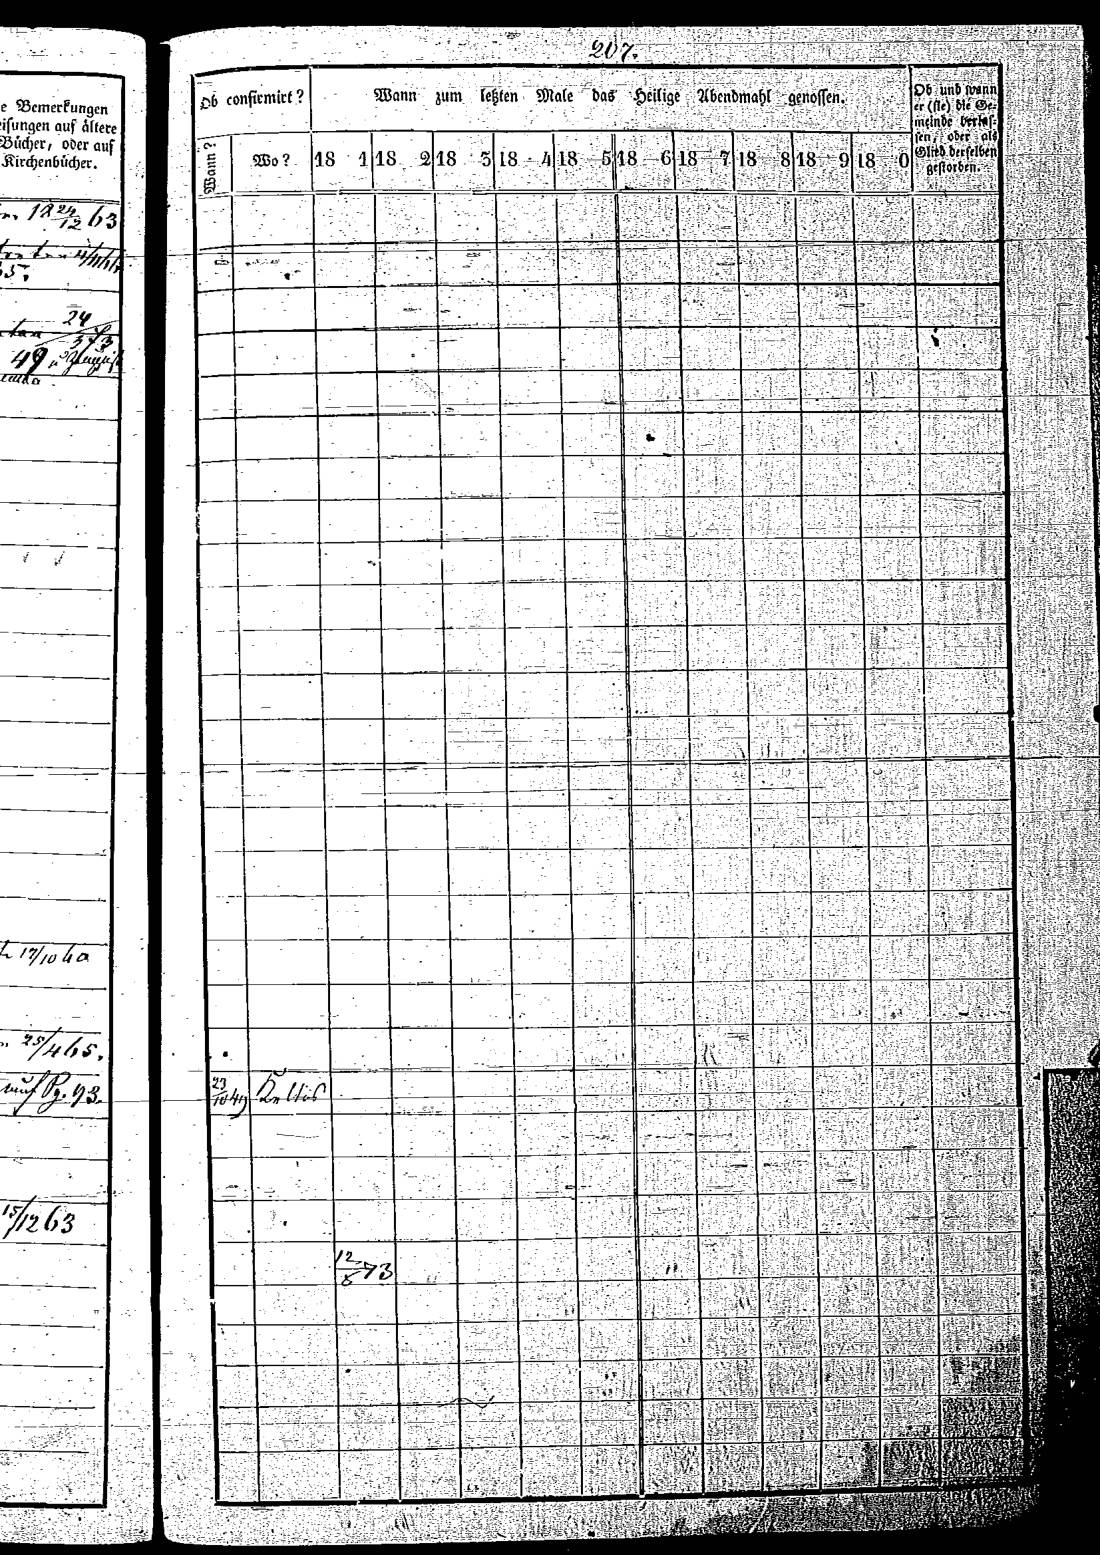 e Bemerkungen
eisungen auf ältere
Bücher, oder auf
Kirchenbücher.
24/12 63
65.
24
49
17/10 60
25/4 65.
auf Pg. 93.
15/12 63
207.
Ob confirmirt?
Wann zum letzten Male das Heilige Abendmahl genossen.
Ob und wann
er (sie) die Ge-
meinde verlas-
sen, oder als
Glied derselben
gestorben.
Wann?
Wo?
18 1 18 2 18 3 18 4 18 5 18 6 18 7 18 8 18 9 18 0
23/10 49 Keltis
12/8 73